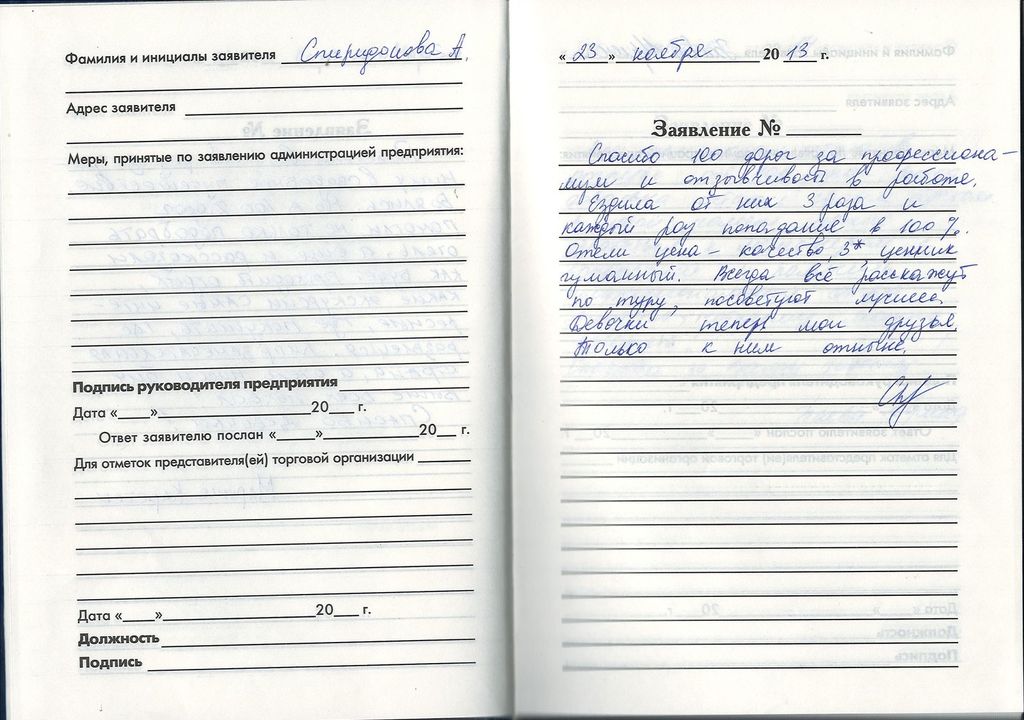 Фамилия и инициалы заявителя Спиридонова А.
Адрес заявителя
Меры, принятые по заявлению администрацией предприятия:
Подпись руководителя предприятия
Дата «___»___20___ г.
Ответ заявителю послан «___»___20___ г.
Для отметок представителя(ей) торговой организации
Дата «___»___20___ г.
Должность
Подпись
«23» ноября 2013 г.
Заявление №
Спасибо 100 дорог за профессиона-
лизм и отзывчивость в работе.
Ездила от них 3 раза и
каждый раз попадание в 100%.
Отели цена - качество, 3* ценник
гуманный. Всегда всё расскажут
по туру, посоветуют лучшее.
Девочки теперь мои друзья.
Только к ним отныне.